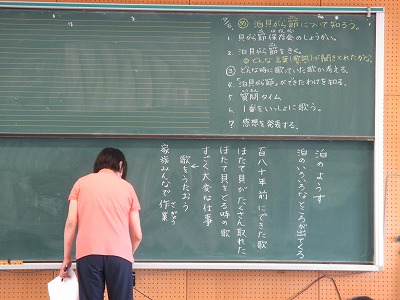 11/10
め 泊貝がら節について知ろう。
1. 貝がら節保存会のしょうかい。
2. 泊貝がら節をきく。
◎どんな言葉(歌詞)が聞きとれたかな。
③ どんな時に歌っていた歌か考える。
4. 泊貝がら節ができたわけを知る。
5. 質問タイム
6. 1番をいっしょに歌う。
7. 感想を発表する。
泊のようす
泊のいろいろなところが出てくる
百八十年前にできた歌
ほたて貝がたくさん取れた
ほたて貝をとる時の歌
すごく大変な仕事
歌をうたおう
家族みんなで作業